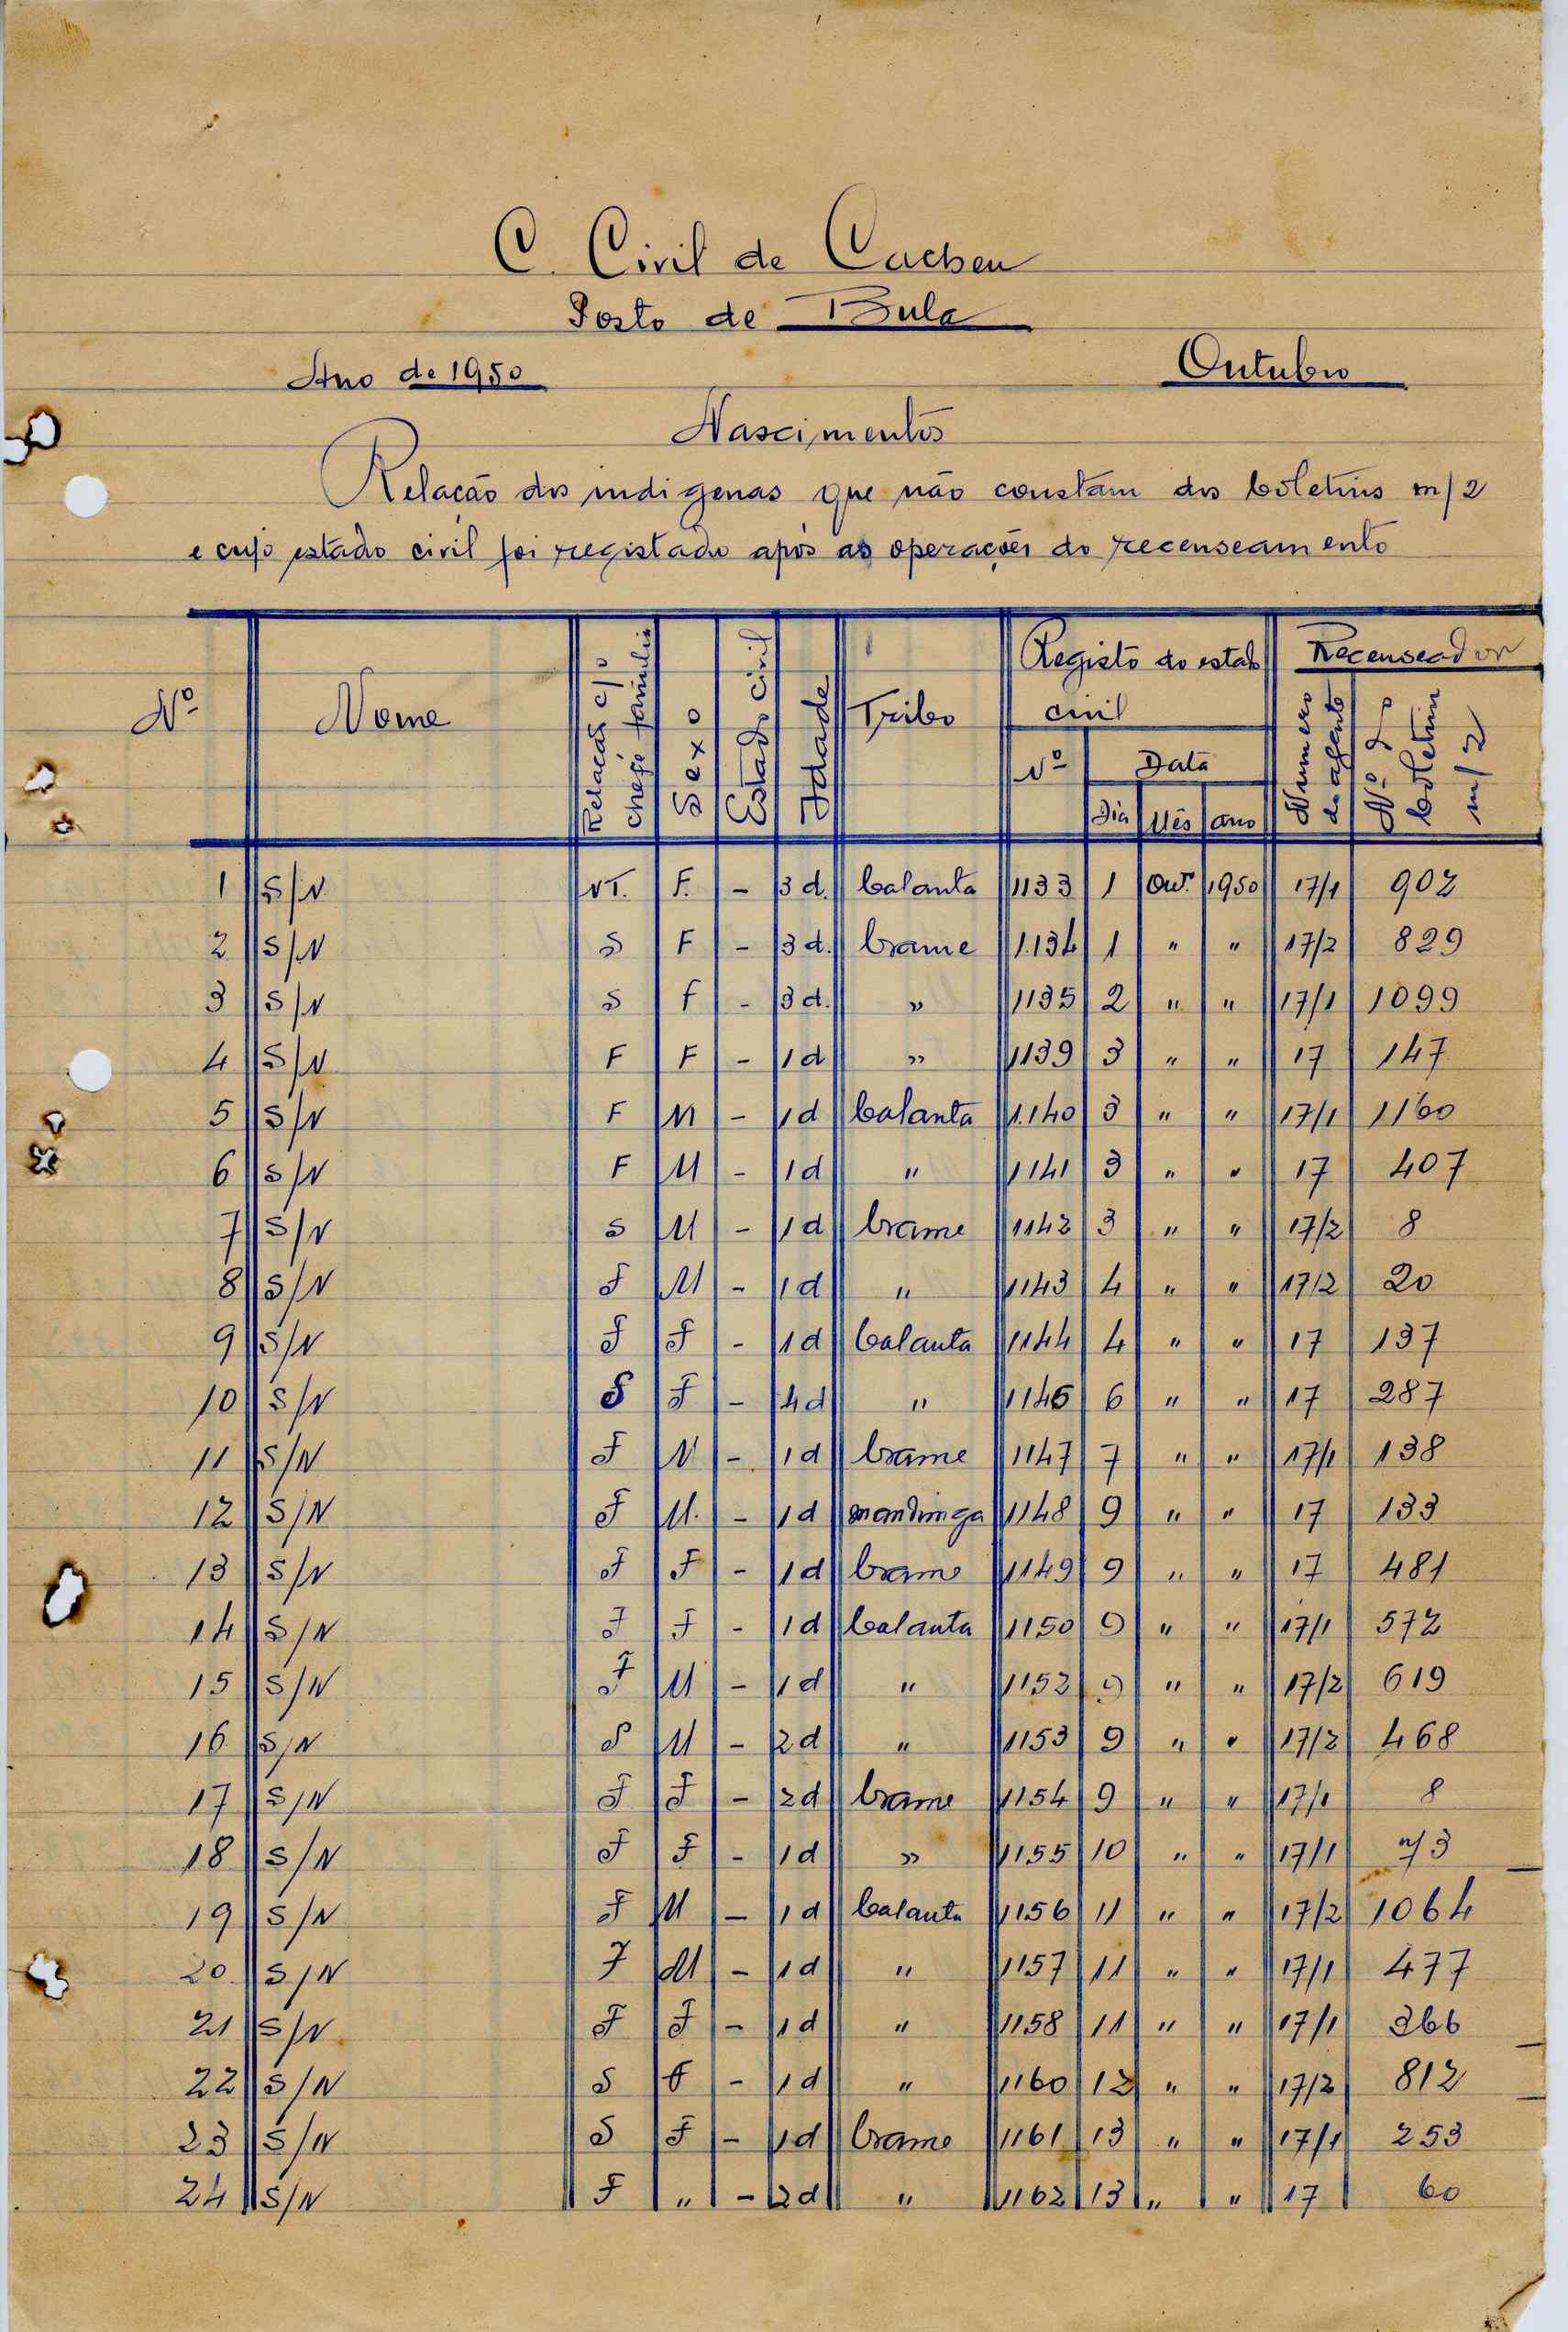 C. Civil de Cacheu
Posto de Bula
Ano de 1950 Outubro
Nascimentos
Relação dos indigenas que não constam dos boletins m/2
e cujo estado civil foi registado após as operações do recenseamento
Nº Nome Relação c/o chefe familia Sexo Estado civil Idade Tribo Registo do estado civil Nº Data Dia Mês ano Recenseador Numero do agente Nº do boletim m/2
1 S/N NT. F. - 3 d. balanta 1133 1 Out. 1950 17/1 902
2 S/N S F - 3 d. brame 1.134 1 " " 17/2 829
3 S/N S F - 3 d. " 1135 2 " " 17/1 1099
4 S/N F F - 1 d " 1139 3 " " 17 147
5 S/N F M - 1 d balanta 1.140 3 " " 17/1 1160
6 S/N F M - 1 d " 1141 3 " " 17 407
7 S/N S M - 1 d brame 1142 3 " " 17/2 8
8 S/N F M - 1 d " 1143 4 " " 17/2 20
9 S/N F F - 1 d balanta 1144 4 " " 17 137
10 S/N S F - 4 d " 1146 6 " " 17 287
11 S/N F M - 1 d brame 1147 7 " " 17/1 138
12 S/N F M. - 1 d mandinga 1148 9 " " 17 133
13 S/N F F - 1 d brame 1149 9 " " 17 481
14 S/N F F - 1 d balanta 1150 9 " " 17/1 572
15 S/N F M - 1 d " 1152 9 " " 17/2 619
16 S/N S M - 2 d " 1153 9 " " 17/2 468
17 S/N F F - 2 d brame 1154 9 " " 17/1 8
18 S/N F F - 1 d " 1155 10 " " 17/1 73
19 S/N F M - 1 d balanta 1156 11 " " 17/2 1064
20 S/N F M - 1 d " 1157 11 " " 17/1 477
21 S/N F F - 1 d " 1158 11 " " 17/1 366
22 S/N S F - 1 d " 1160 12 " " 17/2 812
23 S/N S F - 1 d brame 1161 13 " " 17/1 253
24 S/N F " - 2 d " 1162 13 " " 17 60